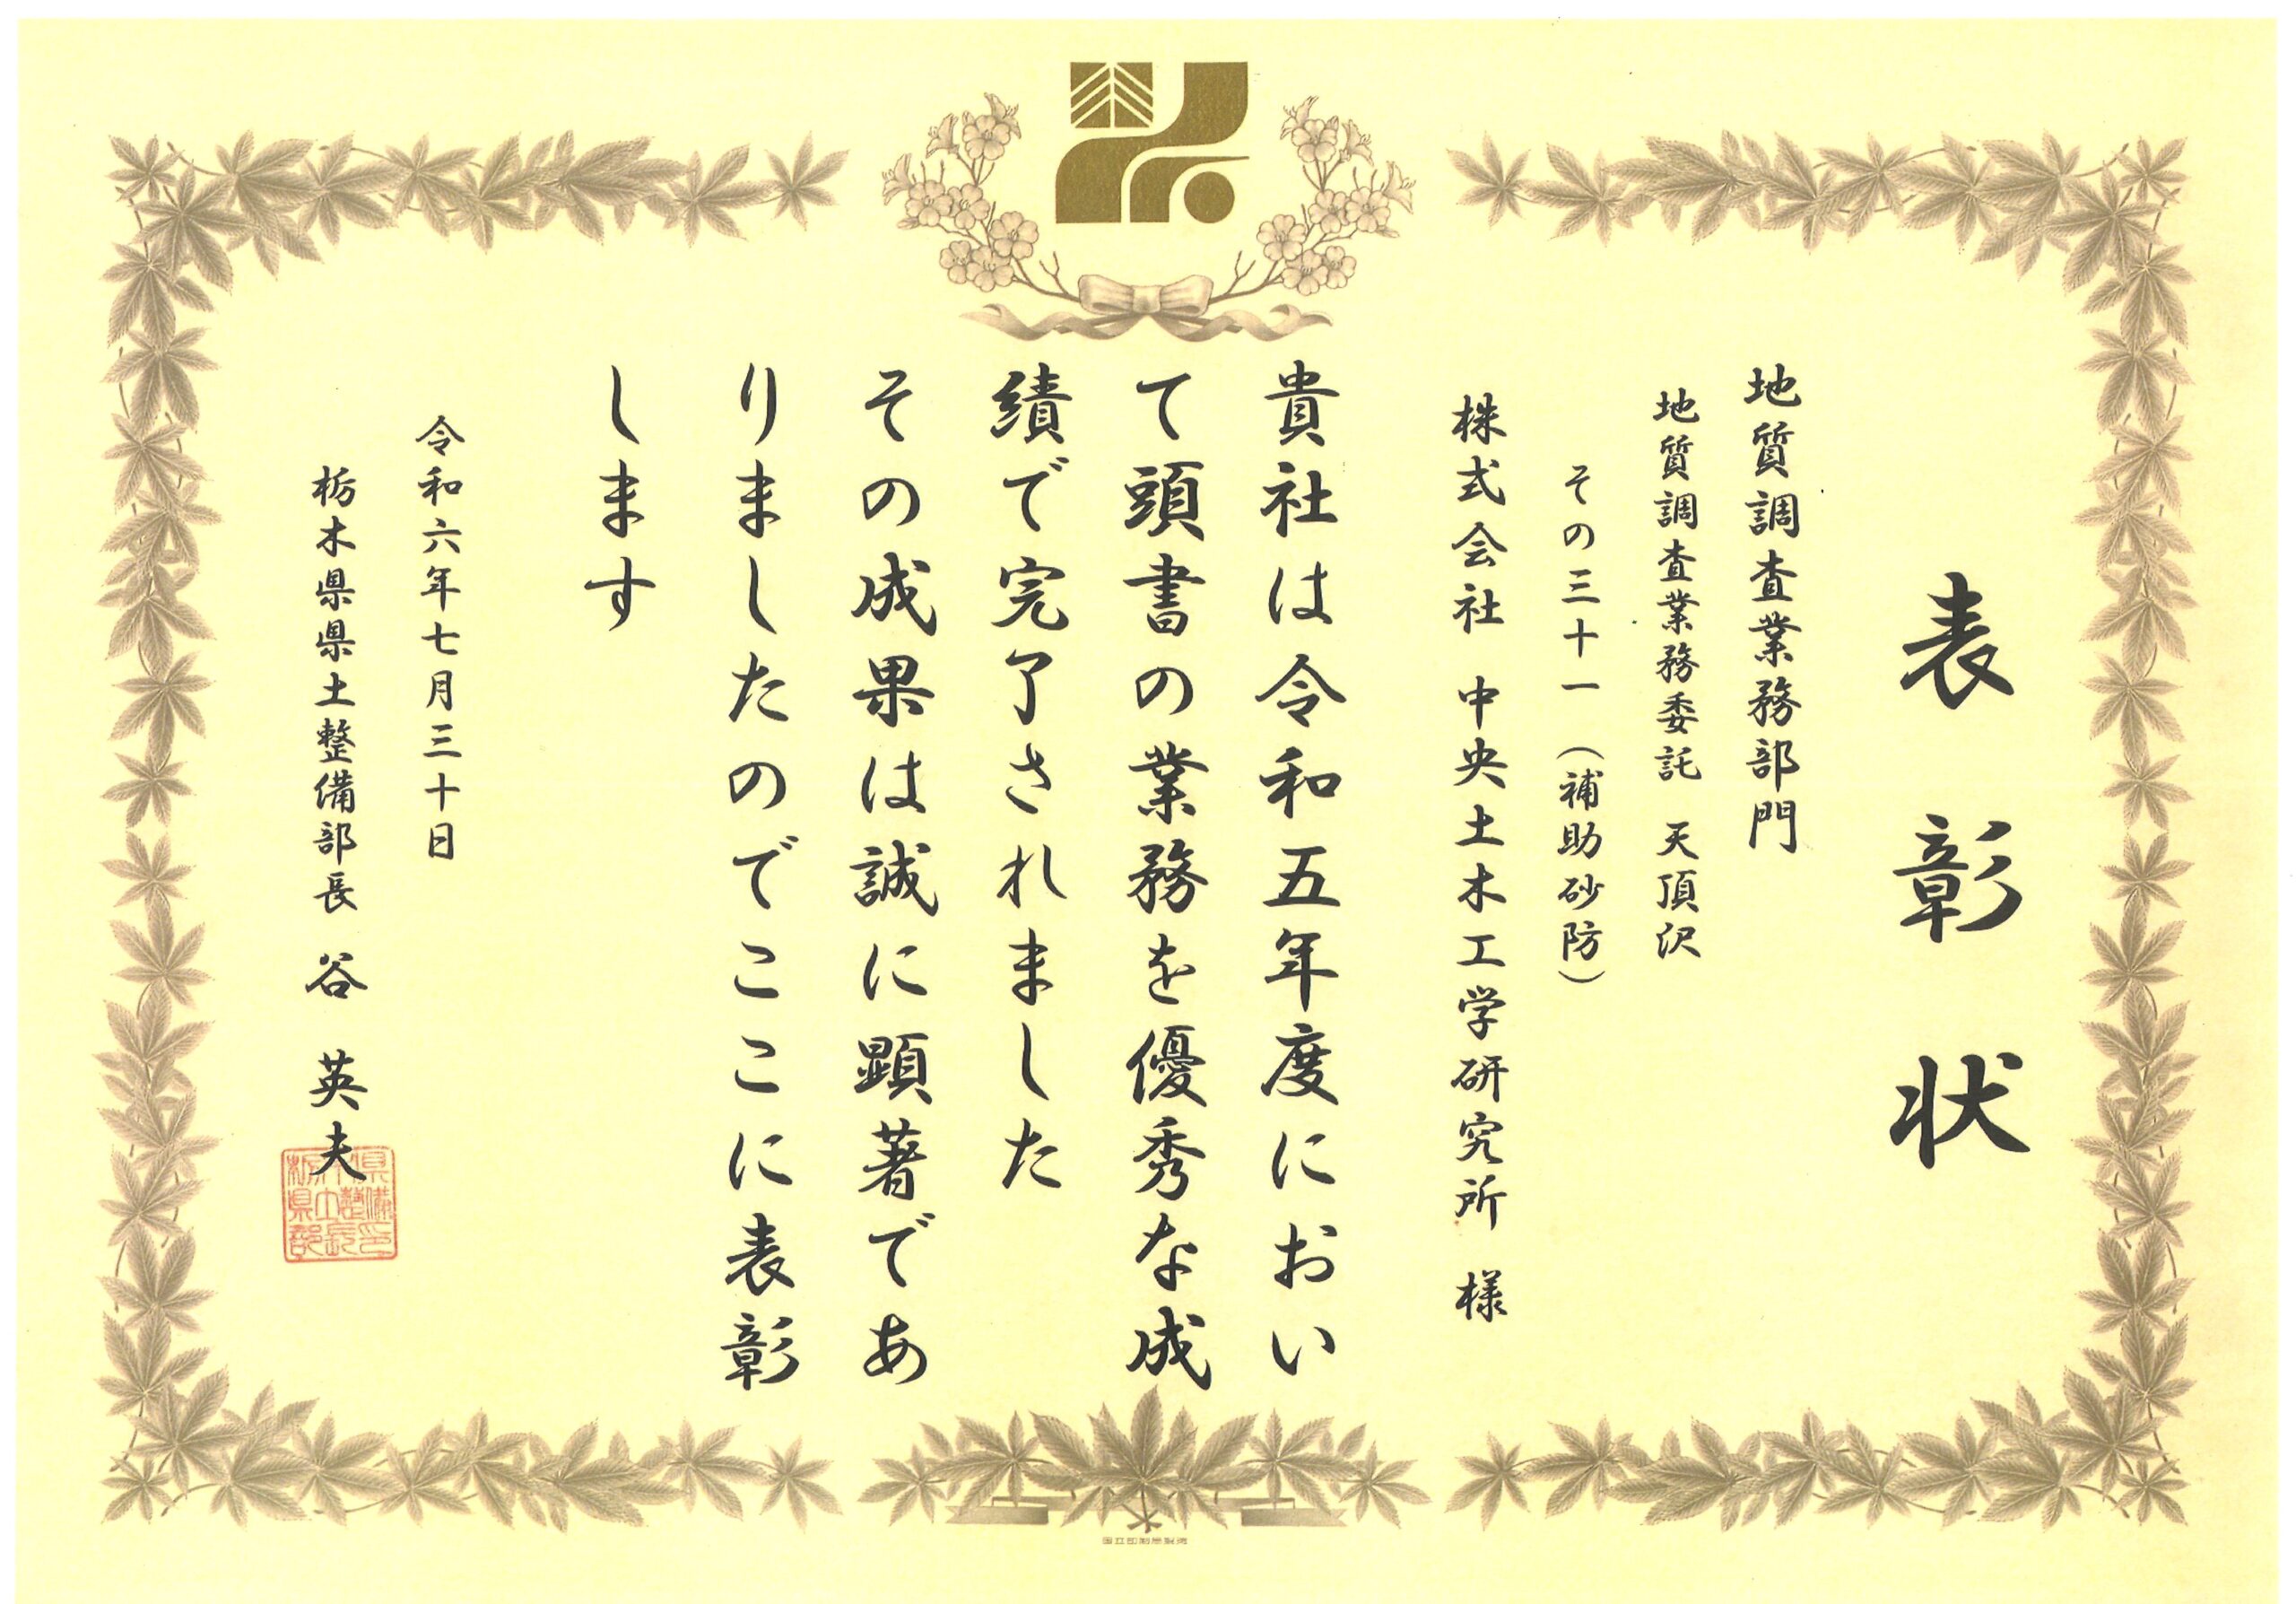 表彰状
地質調査業務部門
地質調査業務委託 天頂沢
その三十一(補助砂防)
株式会社 中央土木工学研究所 様
貴社は令和五年度におい
て頭書の業務を優秀な成
績で完了されました
その成果は誠に顕著であ
りましたのでここに表彰
します
令和六年七月三十日
栃木県県土整備部長 谷 英夫
国立印刷局製造